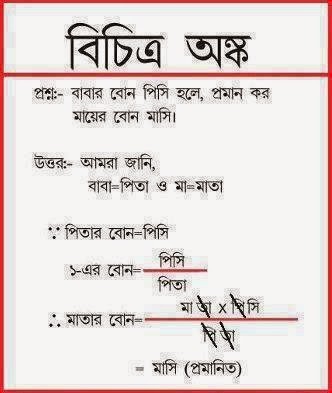 বিচিত্র অঙ্ক
প্রশ্ন:- বাবার বোন পিসি হলে, প্রমান কর
মায়ের বোন মাসি।
উত্তর:- আমরা জানি,
বাবা=পিতা ও মা=মাতা
∵ পিতার বোন=পিসি
১-এর বোন= পিসি
পিতা
∴ মাতার বোন= মা তা x পিসি
পি তা
= মাসি (প্রমানিত)